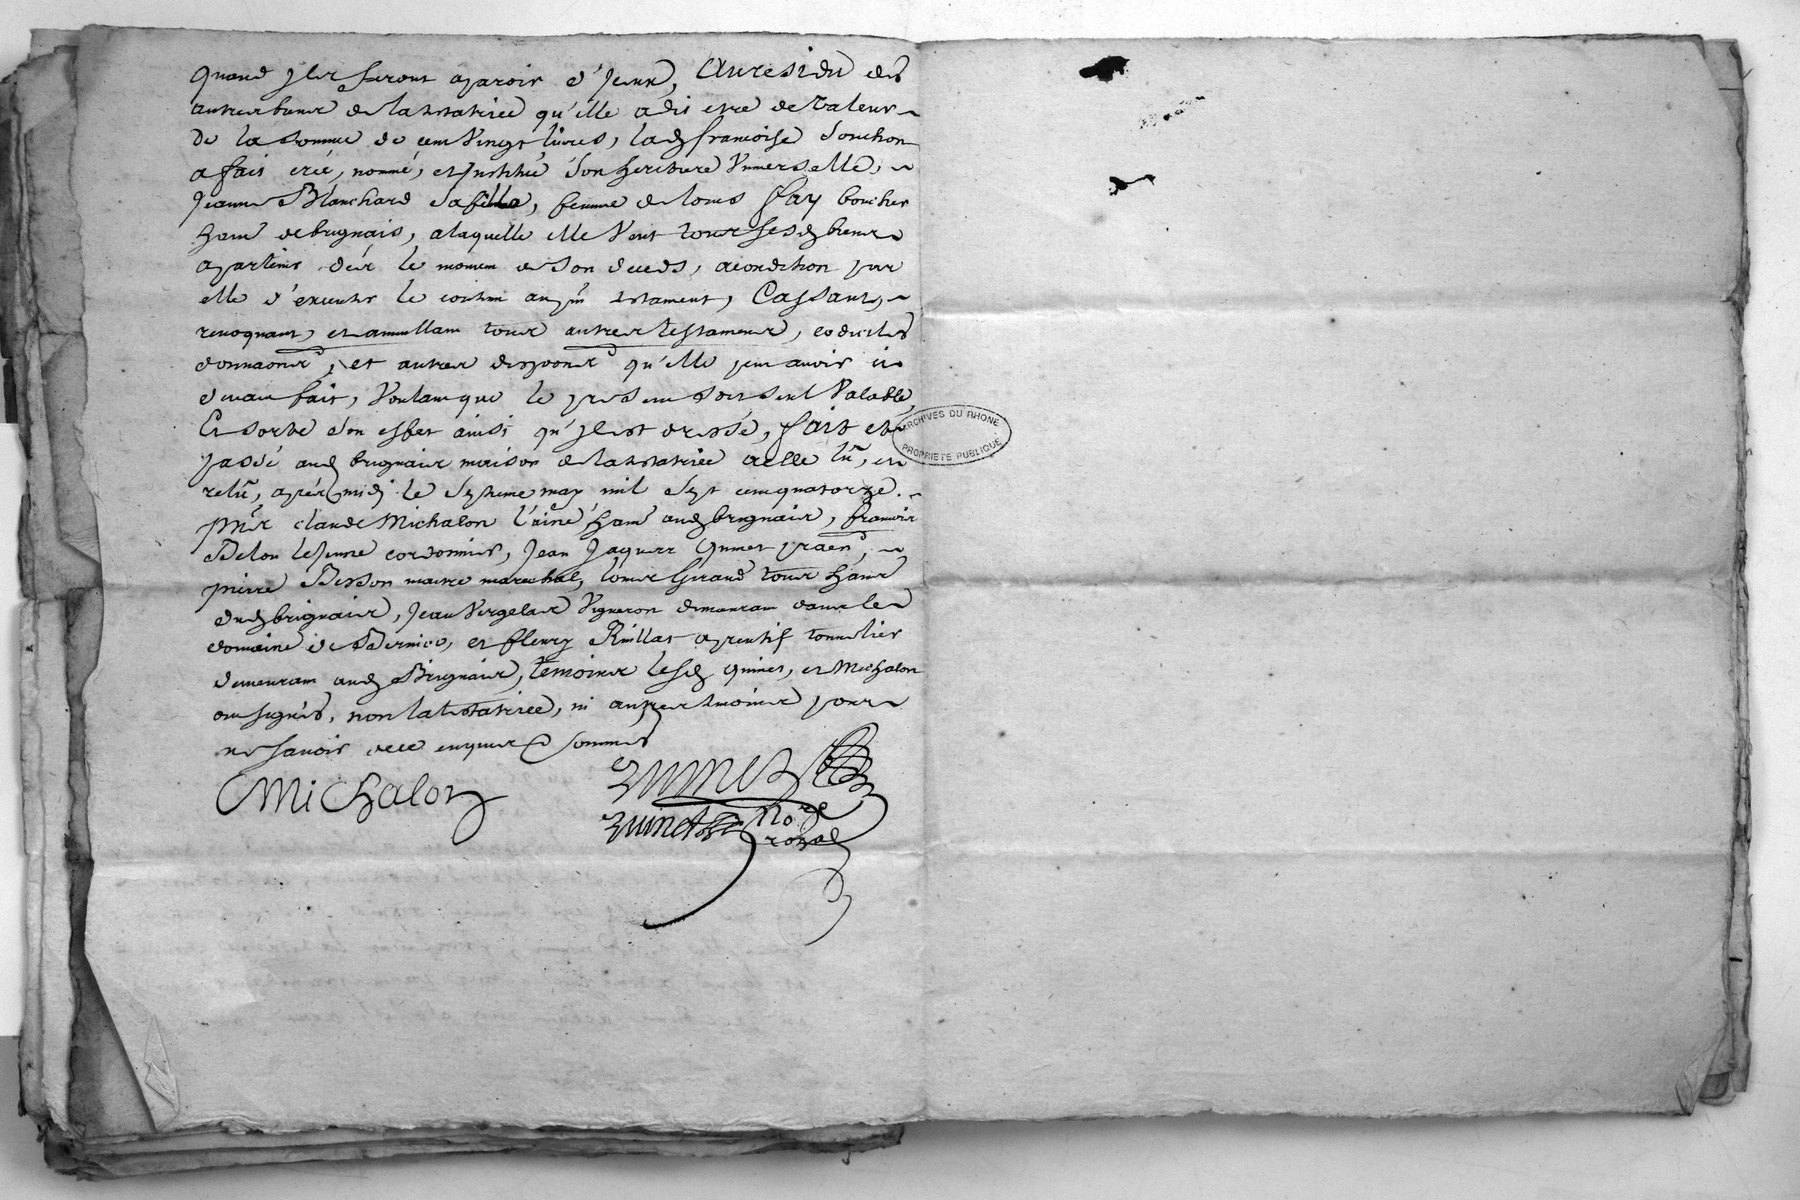 quand jls seront aparoir d'jeux, Au residu des
autres biens de la testatrice qu'elle a dit etre de valeur
De la somme de cent vingt livres, lad francoise Souchon
a fait créé, nommé, et jnstitué son heritiere Vniverselle,
Jeanne Blanchard sa fille, femme de louis fay boucher
hant de brignais, a laquelle elle veut tous ses d biens
apartenir dés le moment de son deceds, a condition par
elle d'executer le contenu au pnt testament, Cassant,
revoquant, et annullant tous autres testamens, codiciles
donnaons, et autres disposons qu'elle peut avoir ci
devant fait, Voulant que le present soit seul Valable,
Et sorte son effet ainsi qu'jl est dressé, fait et
passé aud brignais maison de la testatrice a elle lû, et
relû, aprés midj le septieme may mil sept cent quatorze.
pnts claude Michalon l'ainé hant aud brignais, francois
Delon le jeune cordonnier, Jean Jaques Quinet praen,
pierre Besson maitre marechal, louis Girand tous hans
dud brignais, Jean Vergelas Vigneron demeurant dans le
domaine de, et fleury Rullat aprentif tonnelier
demeurant aud Brignais, temoins lesd Quinet, et Michalon
ont signés, non la testatrice, ni autres temoins pour
ne savoir de ce enquis et sommés
Michalon
Quinet
Quinet No.re
royal
ARCHIVES DU RHONE
PROPRIETE PUBLIQUE